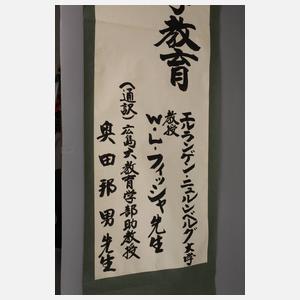 学教育
エルランゲン・ニュルンベルグ大学
教授
W・L・フィッシャ先生
(通訳)広島大教育学部助教授
奥田邦男先生